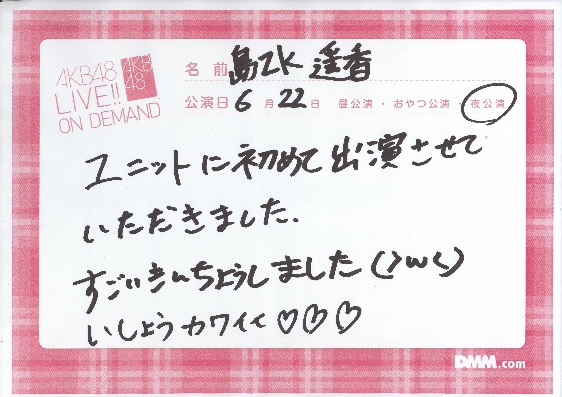 AKB48
LIVE!!
ON DEMAND
AKB
48
名前 島水 遥香
公演日 6月22日 昼公演・おやつ公演・夜公演
ユニットに初めて出演させて
いただきました.
すごいきんちょうしました(>w<)
いしょうカワイイ♡♡♡
DMM.com